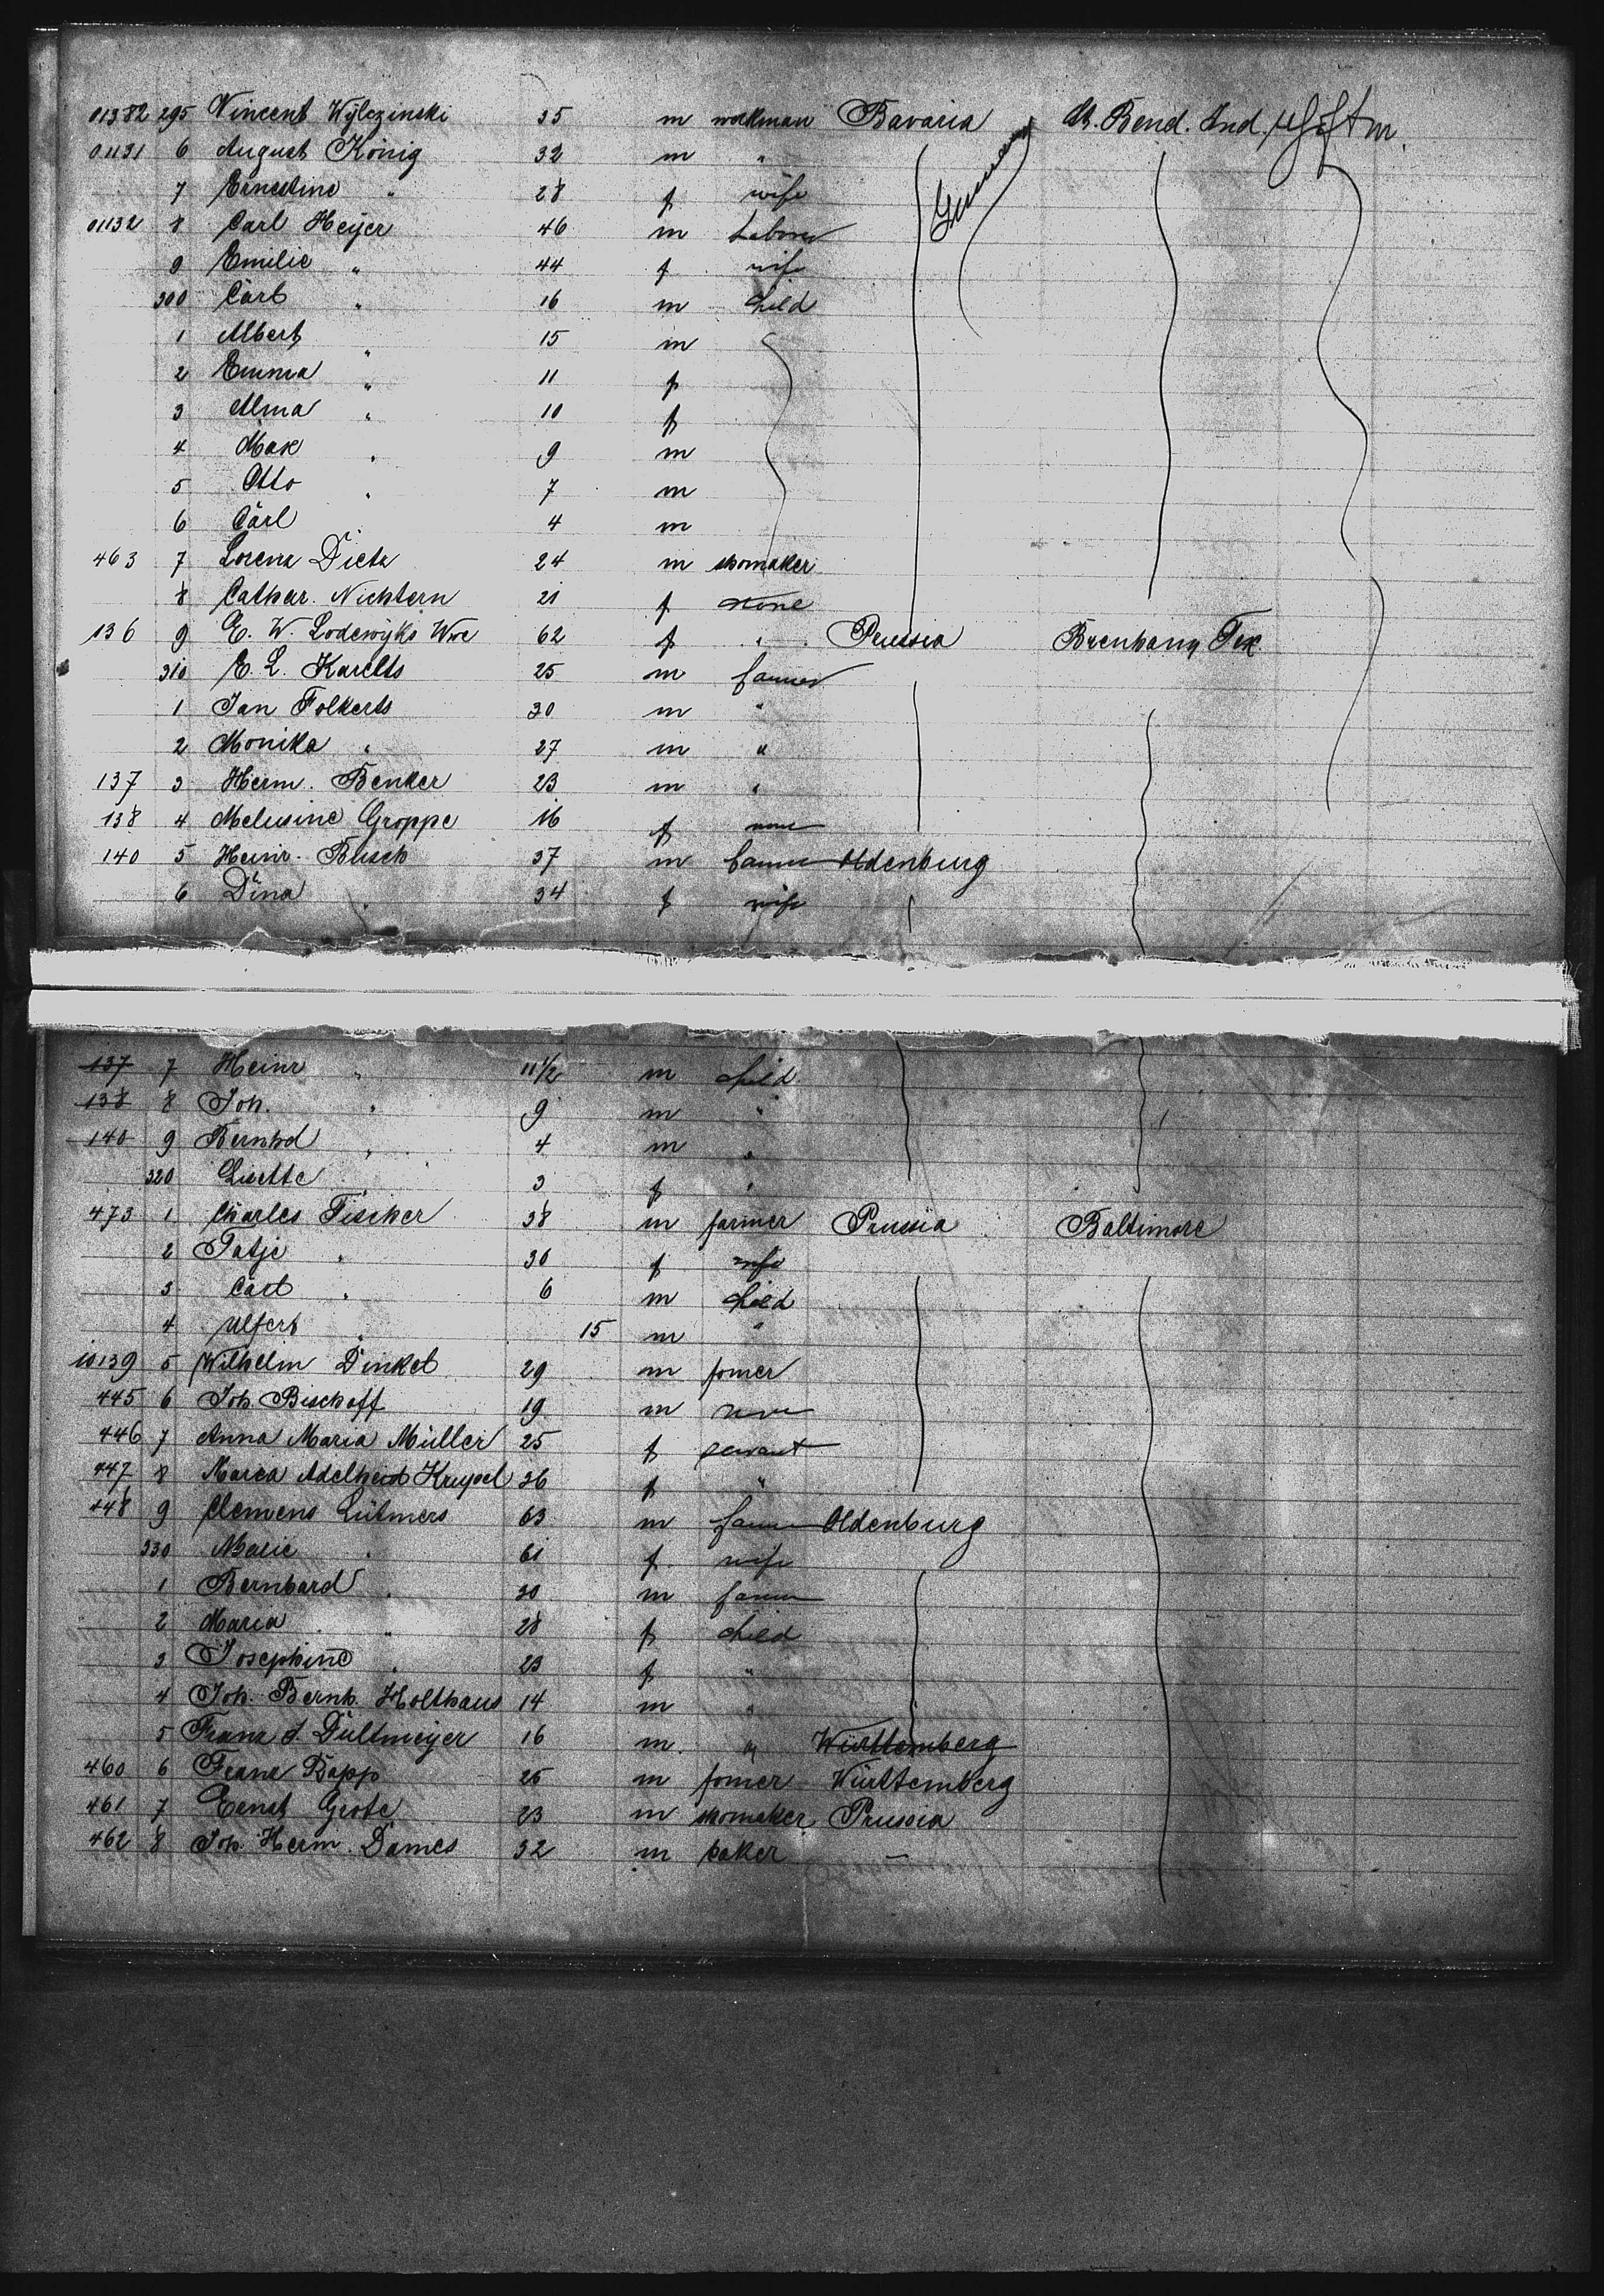 01382 295 Vincent Wylczinski 35 m workman Bavaria St. Bend. Ind.
01131 6 August König 32 m " Germany
7 Ernestine " 28 f wife
01132 8 Carl Heyer 46 m Laborer
9 Emilie " 44 f wife
300 Carl " 16 m child
1 Albert " 15 m
2 Emma " 11 f
3 Alma " 10 f
4 Max " 9 m
5 Otto " 7 m
6 Carl 4 m
463 7 Lorenz Dietz 24 m shomaker
8 Cathar. Nichtern 21 f none
136 9 E. W. Lodewyks Wwe 62 f " Prussia Brenham Tex.
310 E. L. Karelts 25 m farmer
1 Jan Folkerts 30 m "
2 Monika " 27 m "
137 3 Herm. Benker 23 m "
138 4 Melusine Groppe 16 f none
140 5 Heinr. Busch 37 m farmer Oldenburg
6 Dina " 34 f wife
137 7 Heinr " 11 1/2 m child
138 8 Joh. " 9 m "
140 9 Bernhd " 4 m "
320 Lisette 3 f "
473 1 Charles Fischer 38 m farmer Prussia Baltimore
2 Tatje " 30 f wife
3 Carl " 6 m child
4 Ulfert " 15 m "
10139 5 Wilhelm Dinkel 29 m fomer
445 6 Joh. Bischoff 19 m none
446 7 Anna Maria Müller 25 f servant
447 8 Maria Adelheid 26 f "
448 9 Clemens Lütmers 63 m farmer Oldenburg
330 Marie " 61 f wife
1 Bernhard " 30 m farmer
2 Maria " 28 f child
3 Josephine " 23 f "
4 Joh. Bernh. Holthaus 14 m "
5 Franz J. Dultmeyer 16 m " Württemberg
460 6 Franz Rapp 25 m fomer Württemberg
461 7 Ernst Grote 23 m shomaker Prussia
462 8 Joh. Herm. Dames 32 m baker —